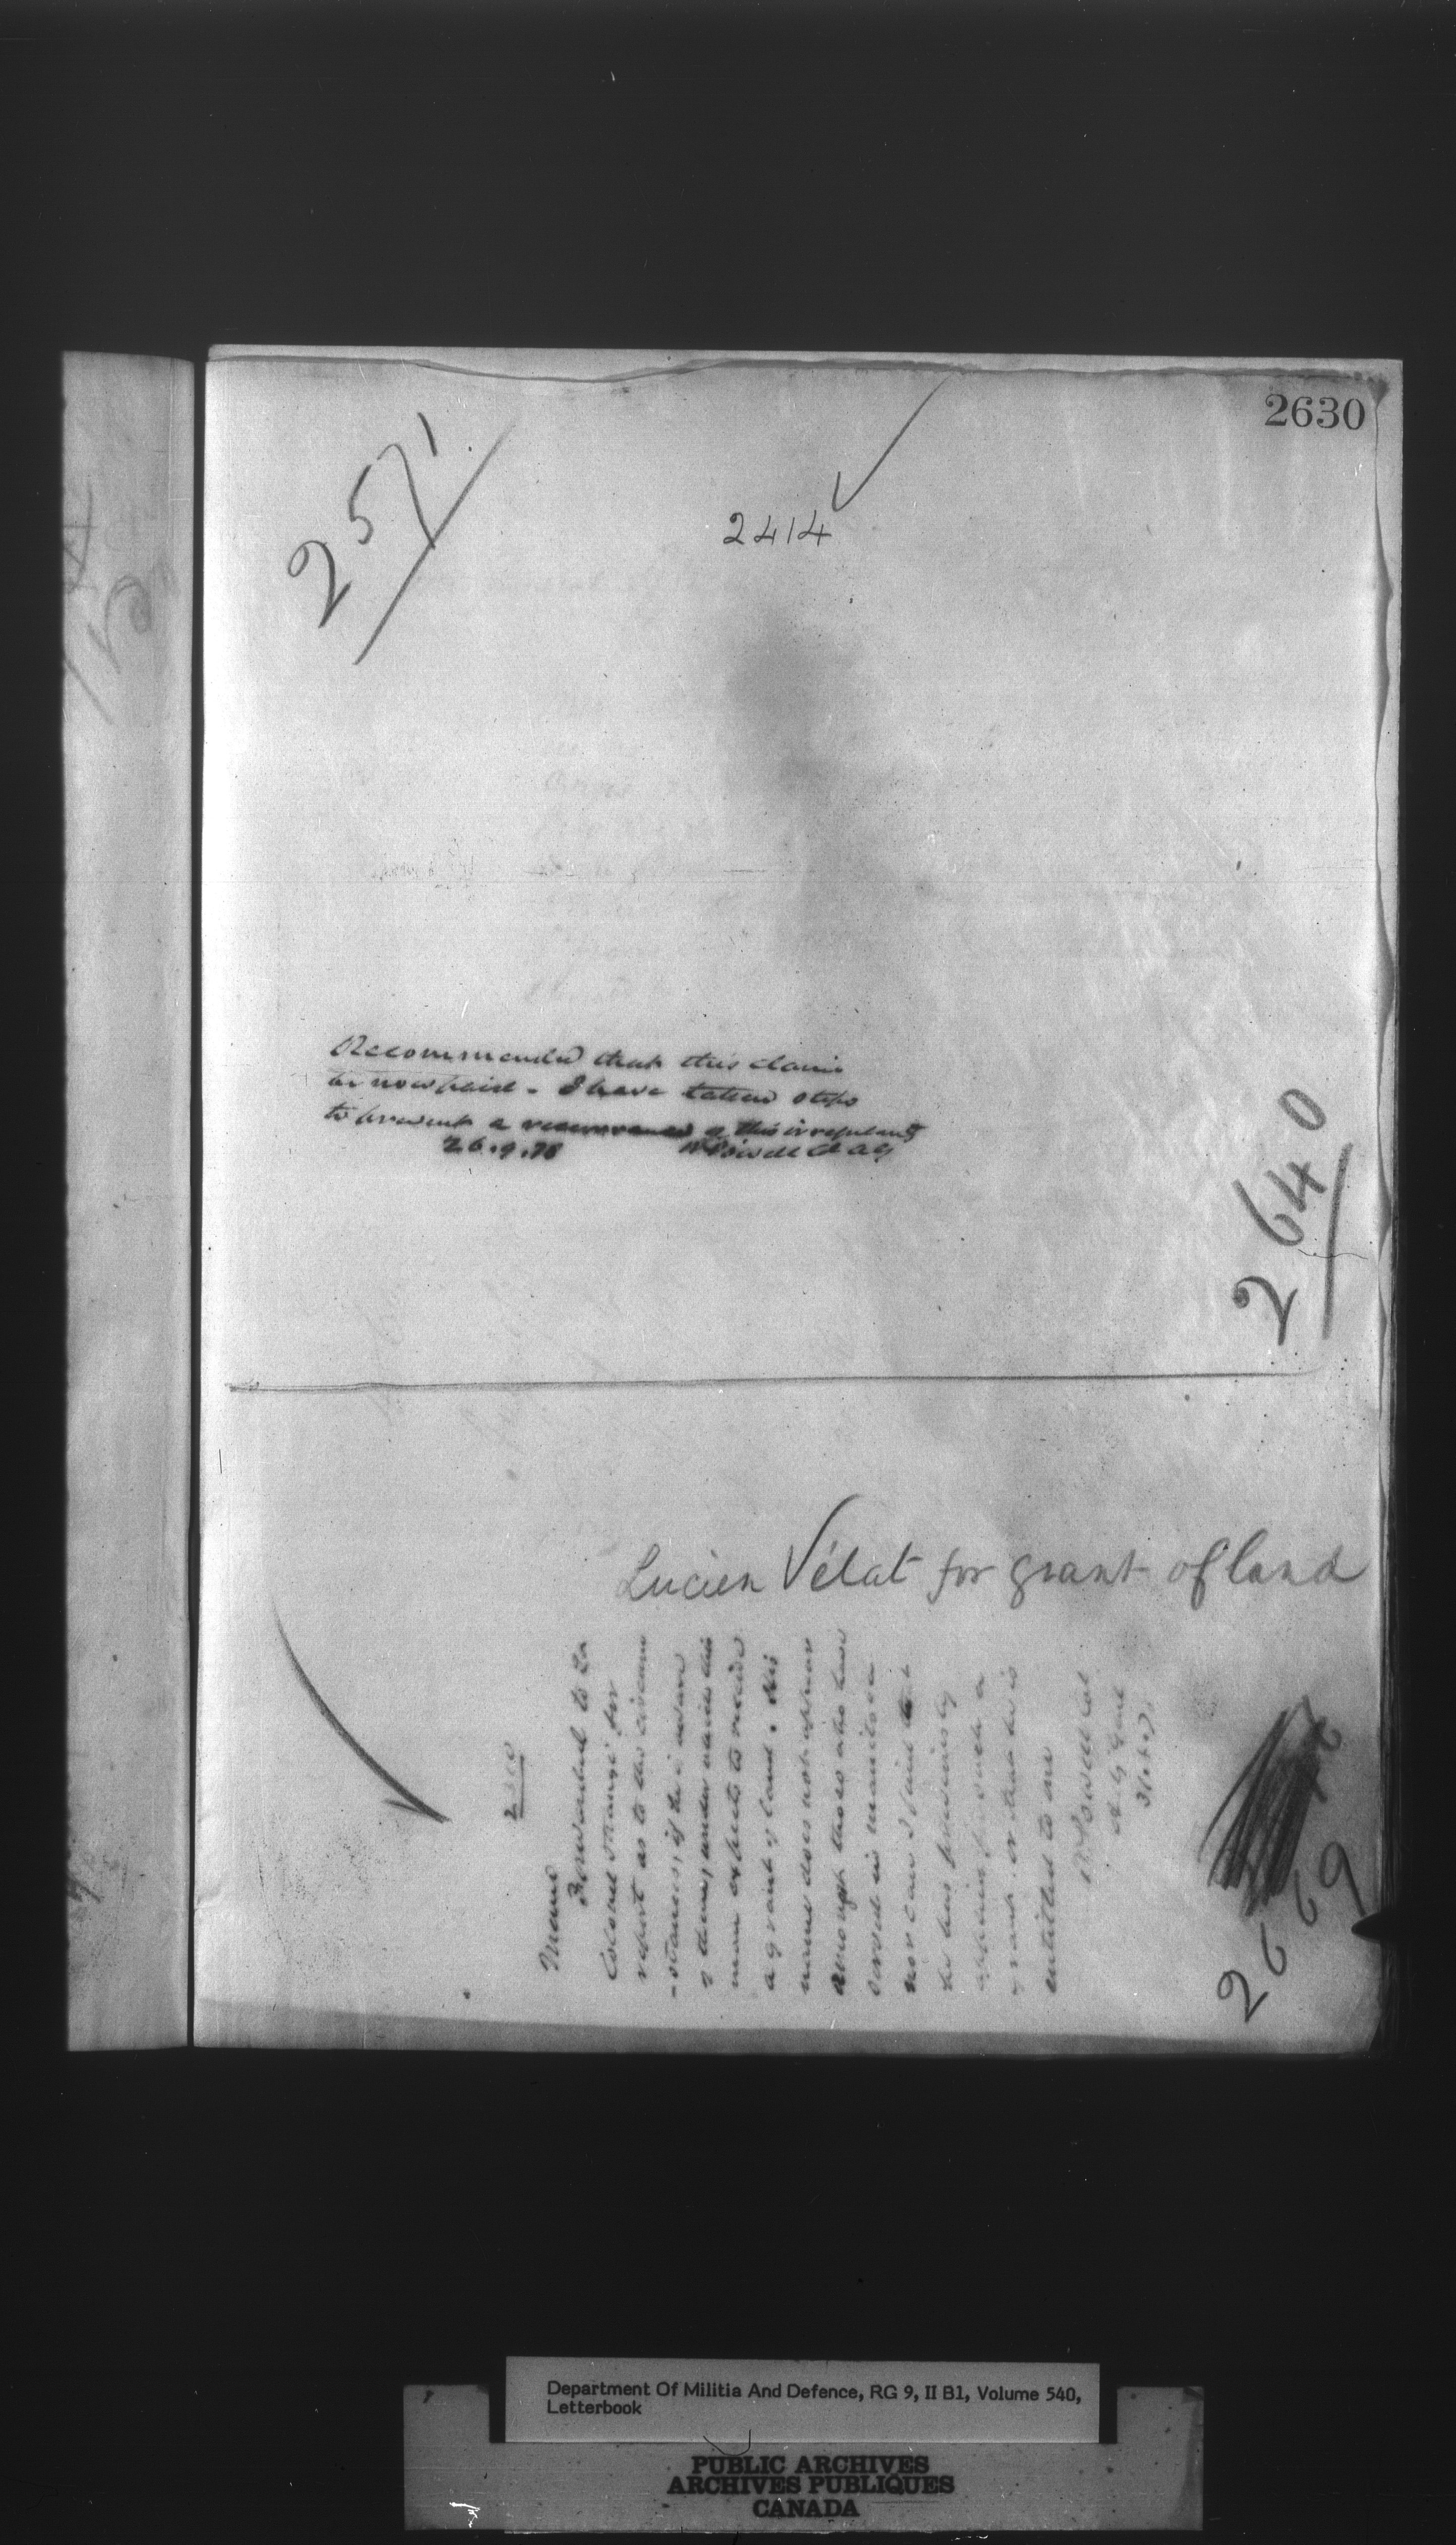 2630
2571
2414
Recommended that this claim
be now paid - I have taken steps
to prevent a recurrence of this irregularity
26.9.78 W Powell Col AG
2640
Lucien Vélat for grant of land
Memo
Forwarded to Lt
Colonel Strange for
report as to the circum
-stances, if he is aware
of them, under which this
man expects to receive
a grant of land. His
name does not appear
amongst those who have
served in Manitoba
nor can I find that
he has previously
applied for such a
grant or that he is
entitled to one
W Powell Col
Adj Genl
2669
Department Of Militia And Defence, RG 9, II B1, Volume 540,
Letterbook
PUBLIC ARCHIVES
ARCHIVES PUBLIQUES
CANADA